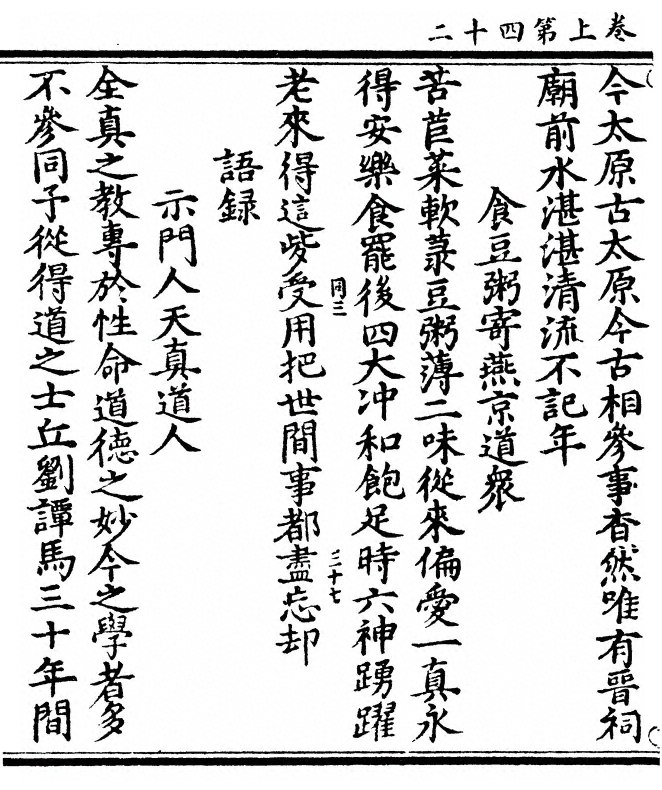 卷上第四十二
今太原古太原今古相參事杳然唯有晉祠
廟前水湛湛清流不記年
食豆粥寄燕京道衆
苦苣菜軟菉豆粥薄二味從來偏愛一真永
得安樂食罷後四大冲和飽足時六神踴躍
同三
三十七
老來得這些受用把世間事都盡忘却
語録
示門人天真道人
全真之教專於性命道德之妙今之學者多
不參同予從得道之士丘劉譚馬三十年間